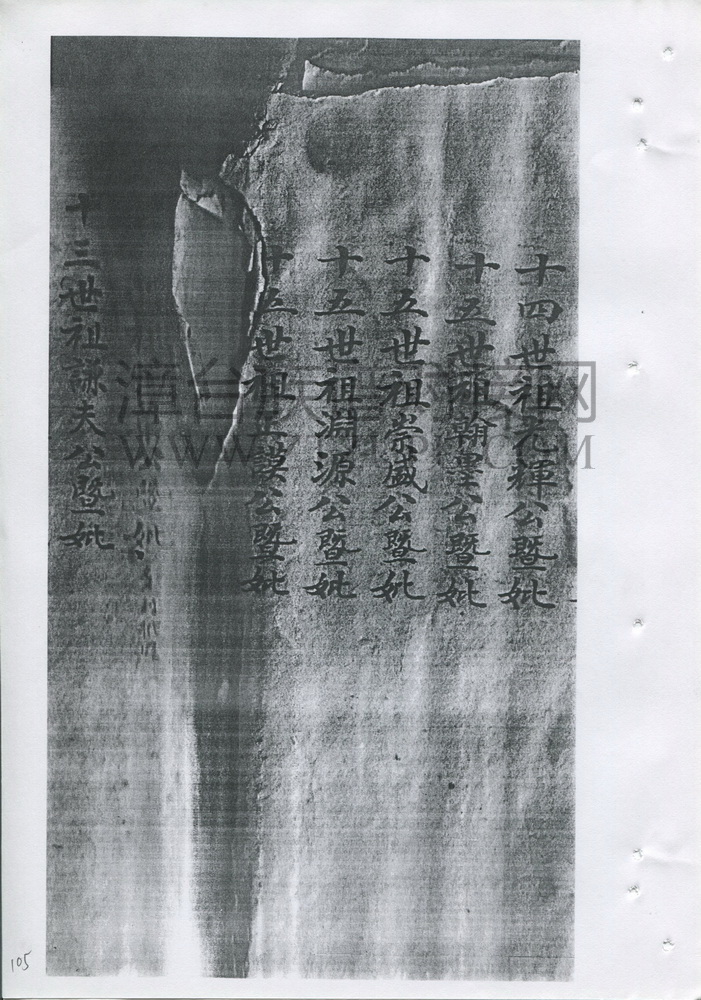 十四世祖光輝公暨妣
十五世祖翰墨公暨妣
十五世祖崇盛公暨妣
十五世祖淵源公暨妣
十五世祖正謨公暨妣
十三世祖謙夫公暨妣
105